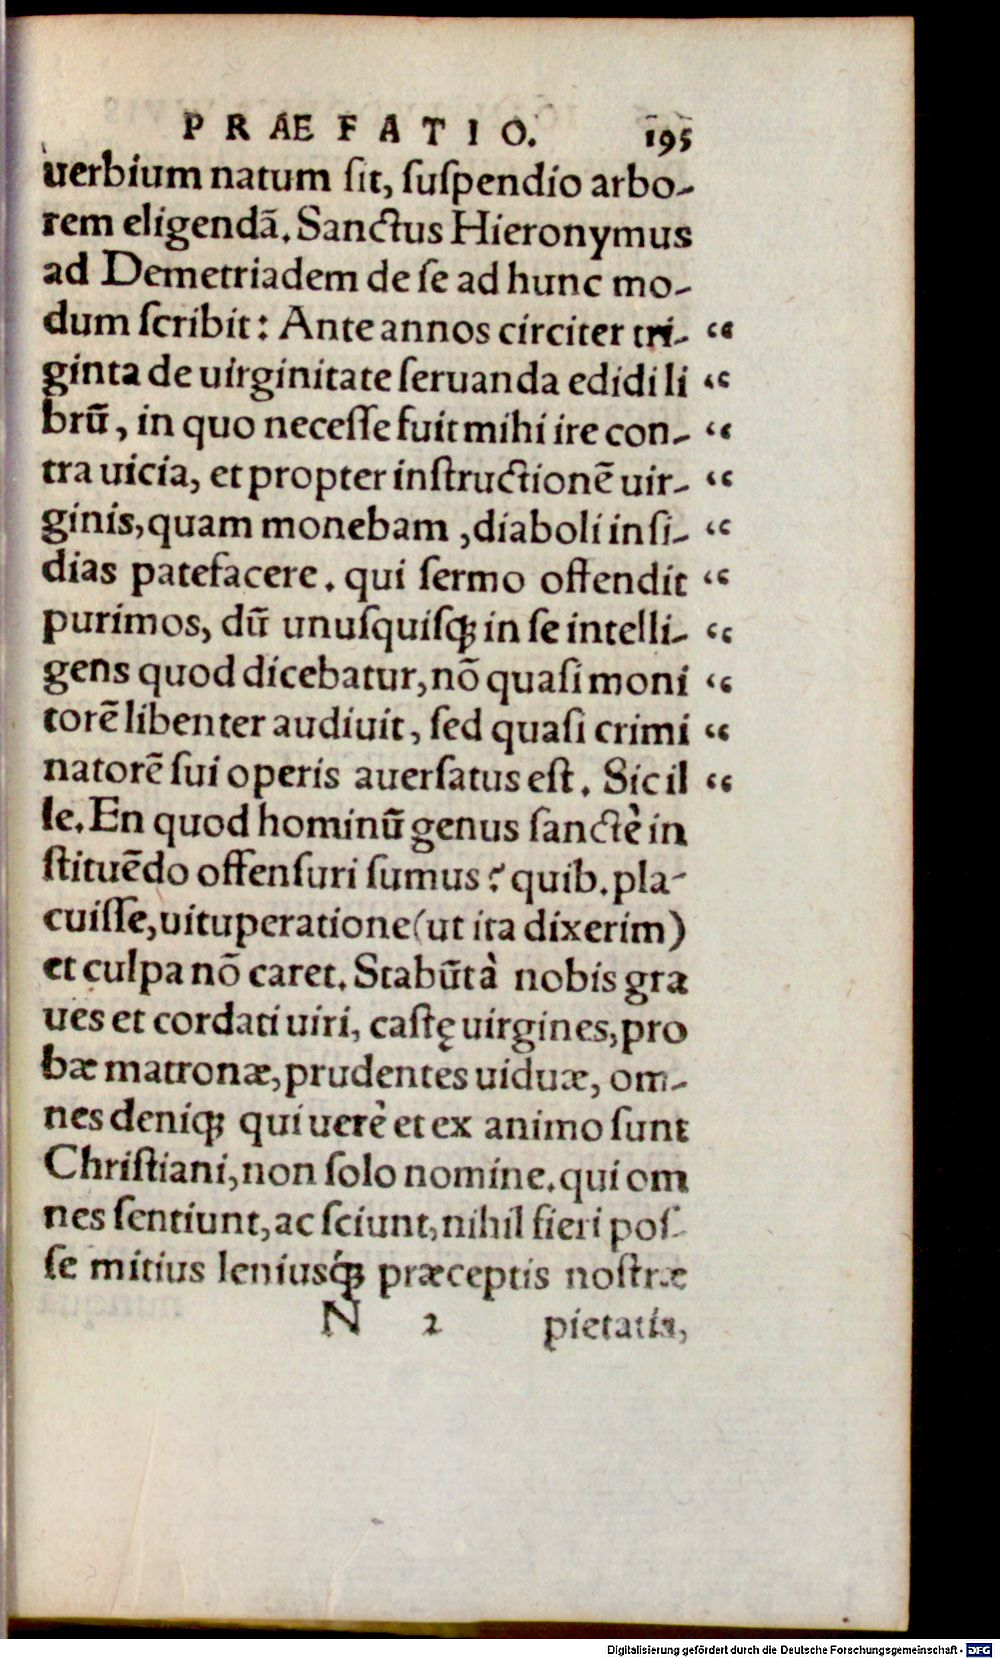 PRÆFATIO. 195
uerbium natum sit, suspendio arbo-
rem eligendā. Sanctus Hieronymus
ad Demetriadem de se ad hunc mo-
dum scribit: Ante annos circiter tri- “
ginta de uirginitate seruanda edidi li “
brū, in quo necesse fuit mihi ire con- “
tra uicia, et propter instructionē uir- “
ginis, quam monebam, diaboli insi- “
dias patefacere. qui sermo offendit “
purimos, dū unusquisq; in se intelli- “
gens quod dicebatur, nō quasi moni “
torē libenter audiuit, sed quasi crimi “
natorē sui operis auersatus est. Sic il “
le. En quod hominū genus sanctè in
stituēdo offensuri sumus? quib. pla-
cuisse, uituperatione (ut ita dixerim)
et culpa nō caret. Stabūt à nobis gra
ues et cordati uiri, castę uirgines, pro
bæ matronæ, prudentes uiduæ, om-
nes deniq; qui uerè et ex animo sunt
Christiani, non solo nomine. qui om
nes sentiunt, ac sciunt, nihil fieri pos-
se mitius leniusq́; præceptis nostræ
N 2 pietatis,
Digitalisierung gefördert durch die Deutsche Forschungsgemeinschaft - DFG